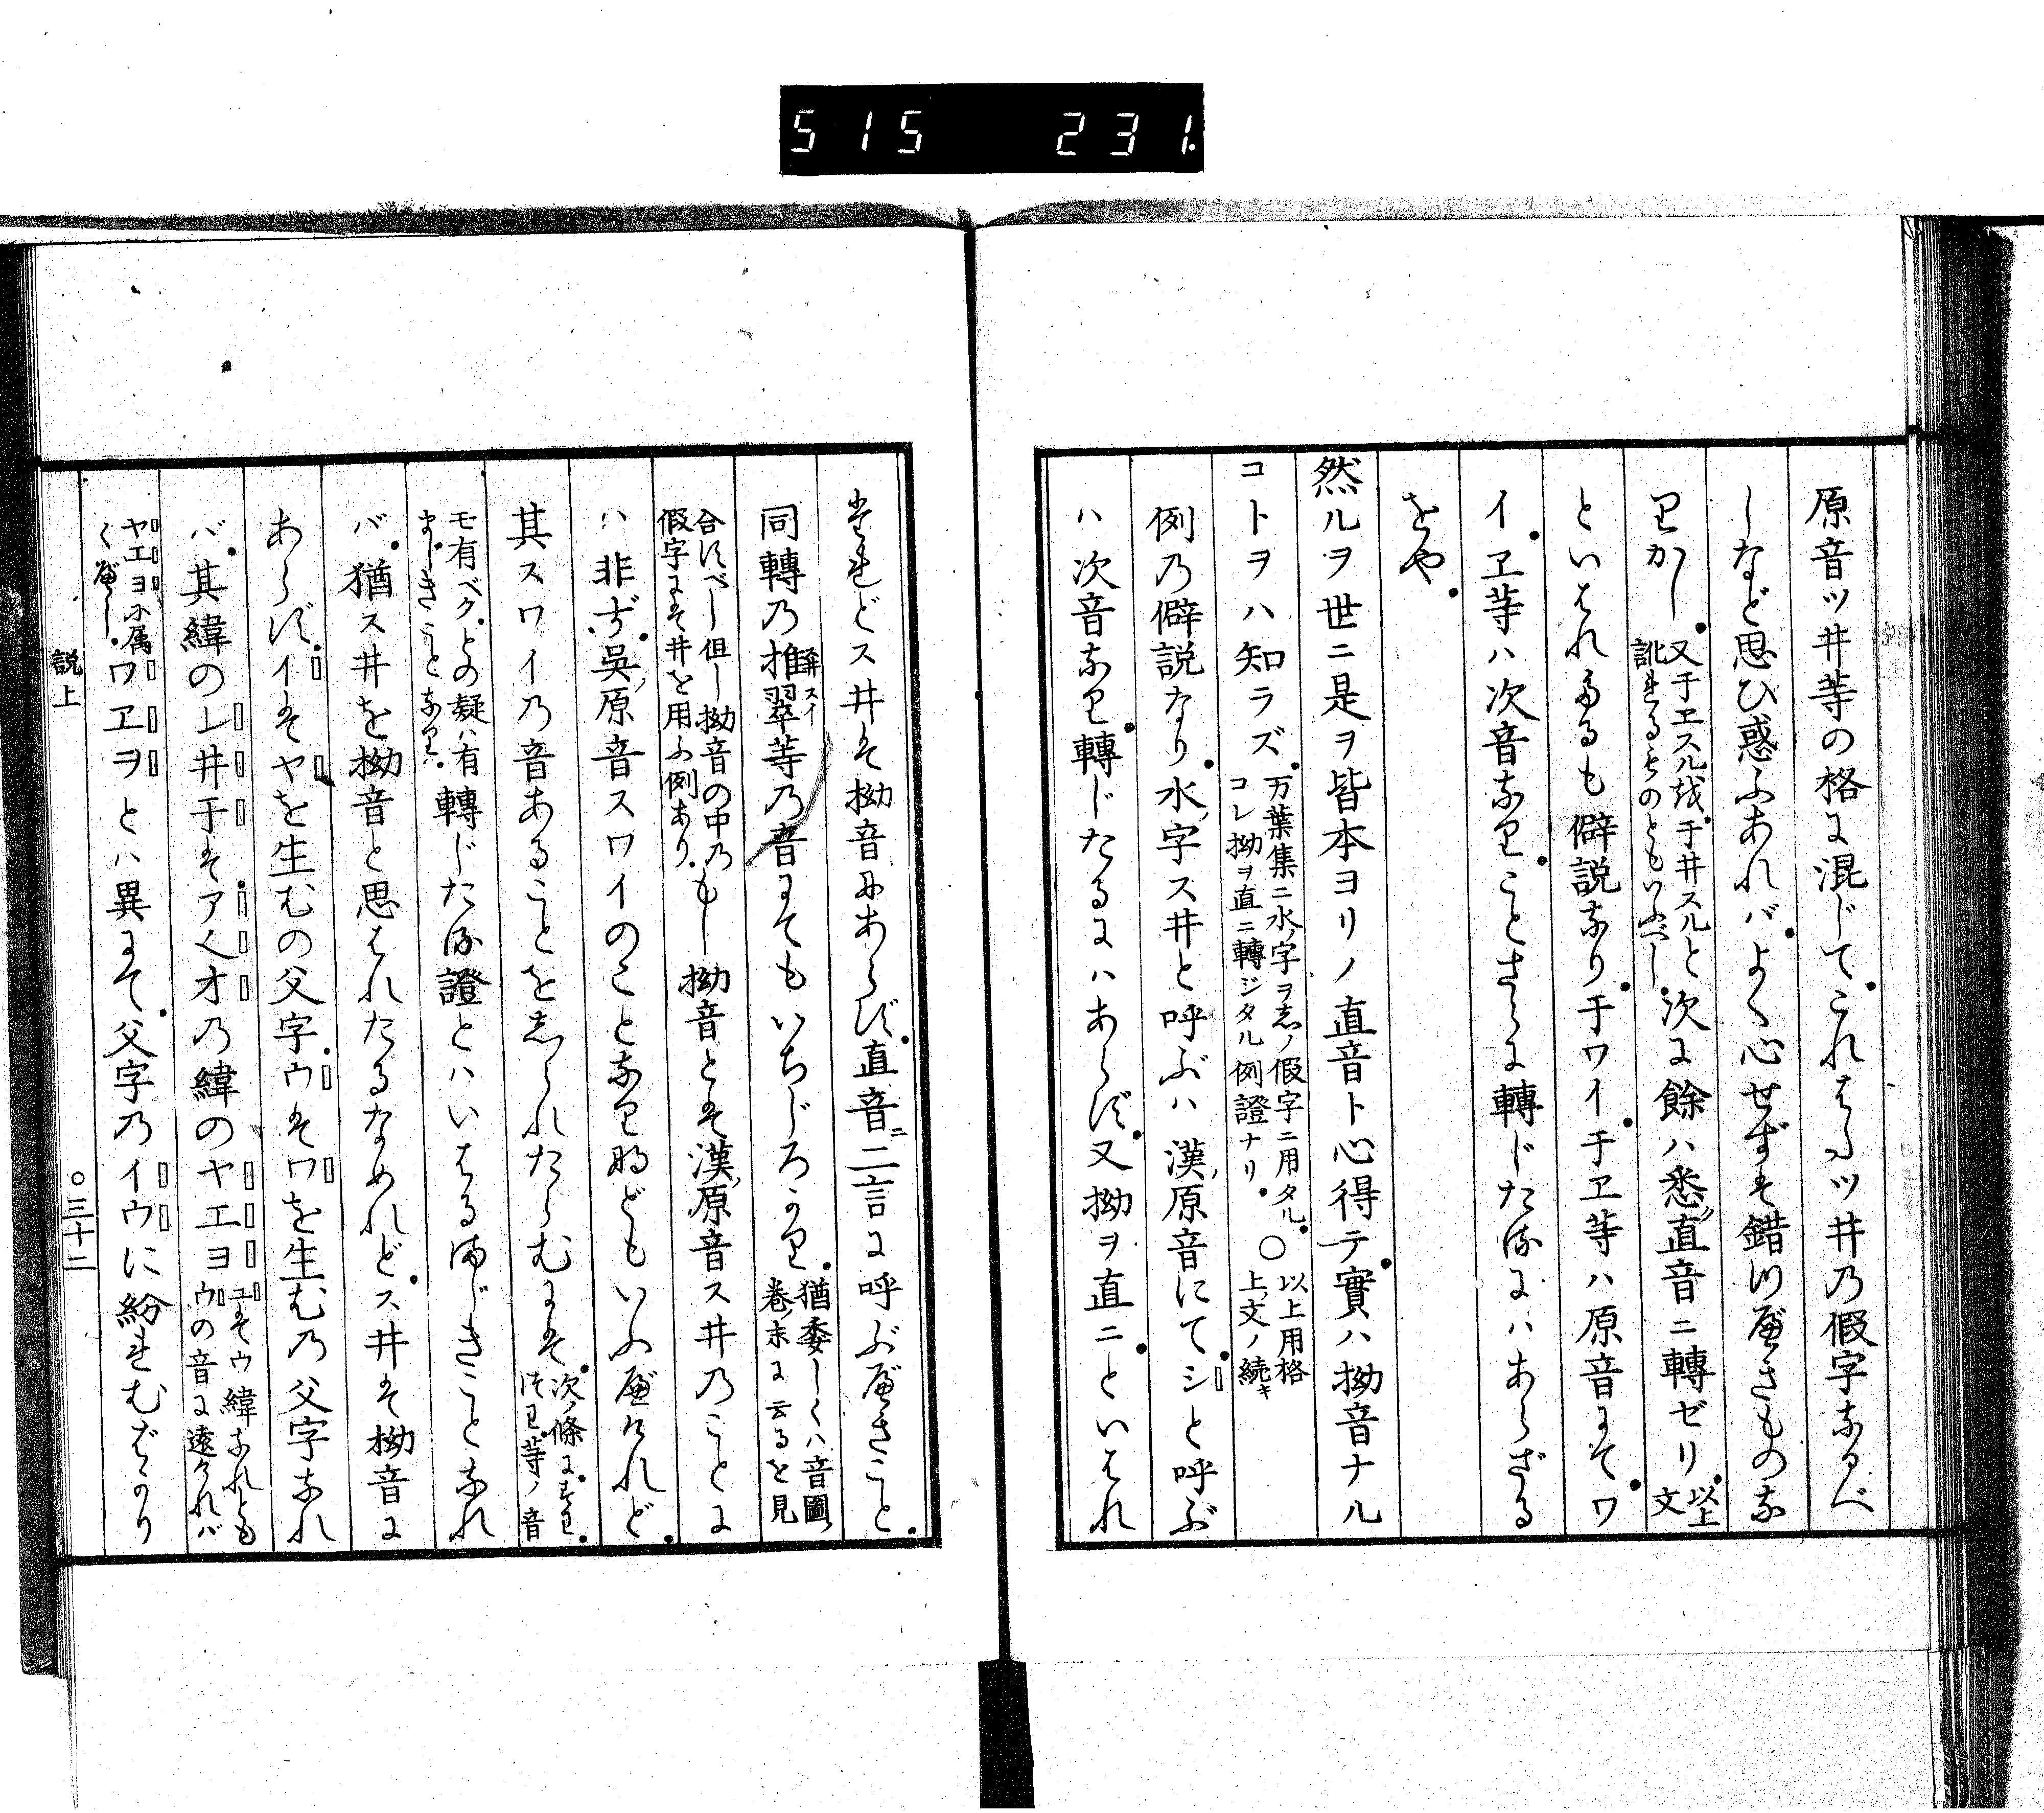 515 231.
原音ツ井等の格に混じてこれはたツ井乃假字なるべ
しなど思ひ惑ふあれバよく心せずは錯りぬべきものな
りかし又于ヱスル越于井スルと
訛れるものともいふべし次に餘ハ悉直音ニ轉ゼリ以上
文
といはれたるも僻説なり于ワイ于ヱ等ハ原音にてワ
イヱ等ハ次音なりことさらに轉じたるにハあらざる
をや
然ルヲ世ニ是ヲ皆本ヨリノ直音ト心得テ實ハ拗音ナル
コトヲハ知ラズ万葉集ニ水ノ字ヲ志ノ假字ニ用タル
コレ拗ヲ直ニ轉ジタル例證ナリ○以上用格
上ノ文ノ続キ
例乃僻説なり水ノ字ス井と呼ぶハ漢ノ原音にてシと呼ぶ
ハ次音なり轉じたるにハあらず又拗ヲ直ニといはれ
たれどス井は拗音にあらず直音ニ二言に呼ぶべきこと
同轉乃推翠等乃音にてもいちじろかり猶委しくハ音圖ノ
巻ノ末に云るを見
合すべし但し拗音の中乃
假字にも井を用ふ例ありもし拗音とは漢ノ原音ス井乃ことに
ハ非ず呉ノ原音スワイのことなり歟どもいふべけれど
其スワイ乃音あることを志られたらむには次ノ條に
等ノ音
モ有ベクとの疑ハ有
まじきことなり轉じたる證とハいはるまじきことなれ
バ猶ス井を拗音と思はれたるなめれどス井は拗音に
あらずイはヤを生むの父字ウはワを生む乃父字なれ
バ其緯のレ井于はア乃緯のヤエヨユはウ緯なれとも
ウの音に遠ければ
ヤエヨに属
くべしワヱヲとハ異にて父字乃イウに紛れむばかり
説上 ○三十二